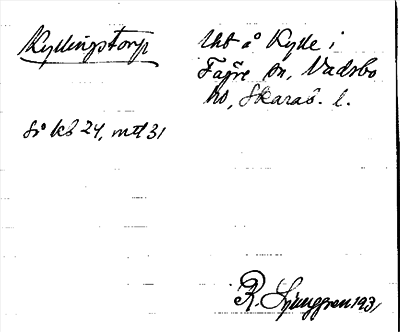 Kyllingstorp
Utt å Kylle i
Fägre sn, Vadsbo
hd, Skarab. l.
Sö kb 24, mtl 31
R. Ljunggren 1931